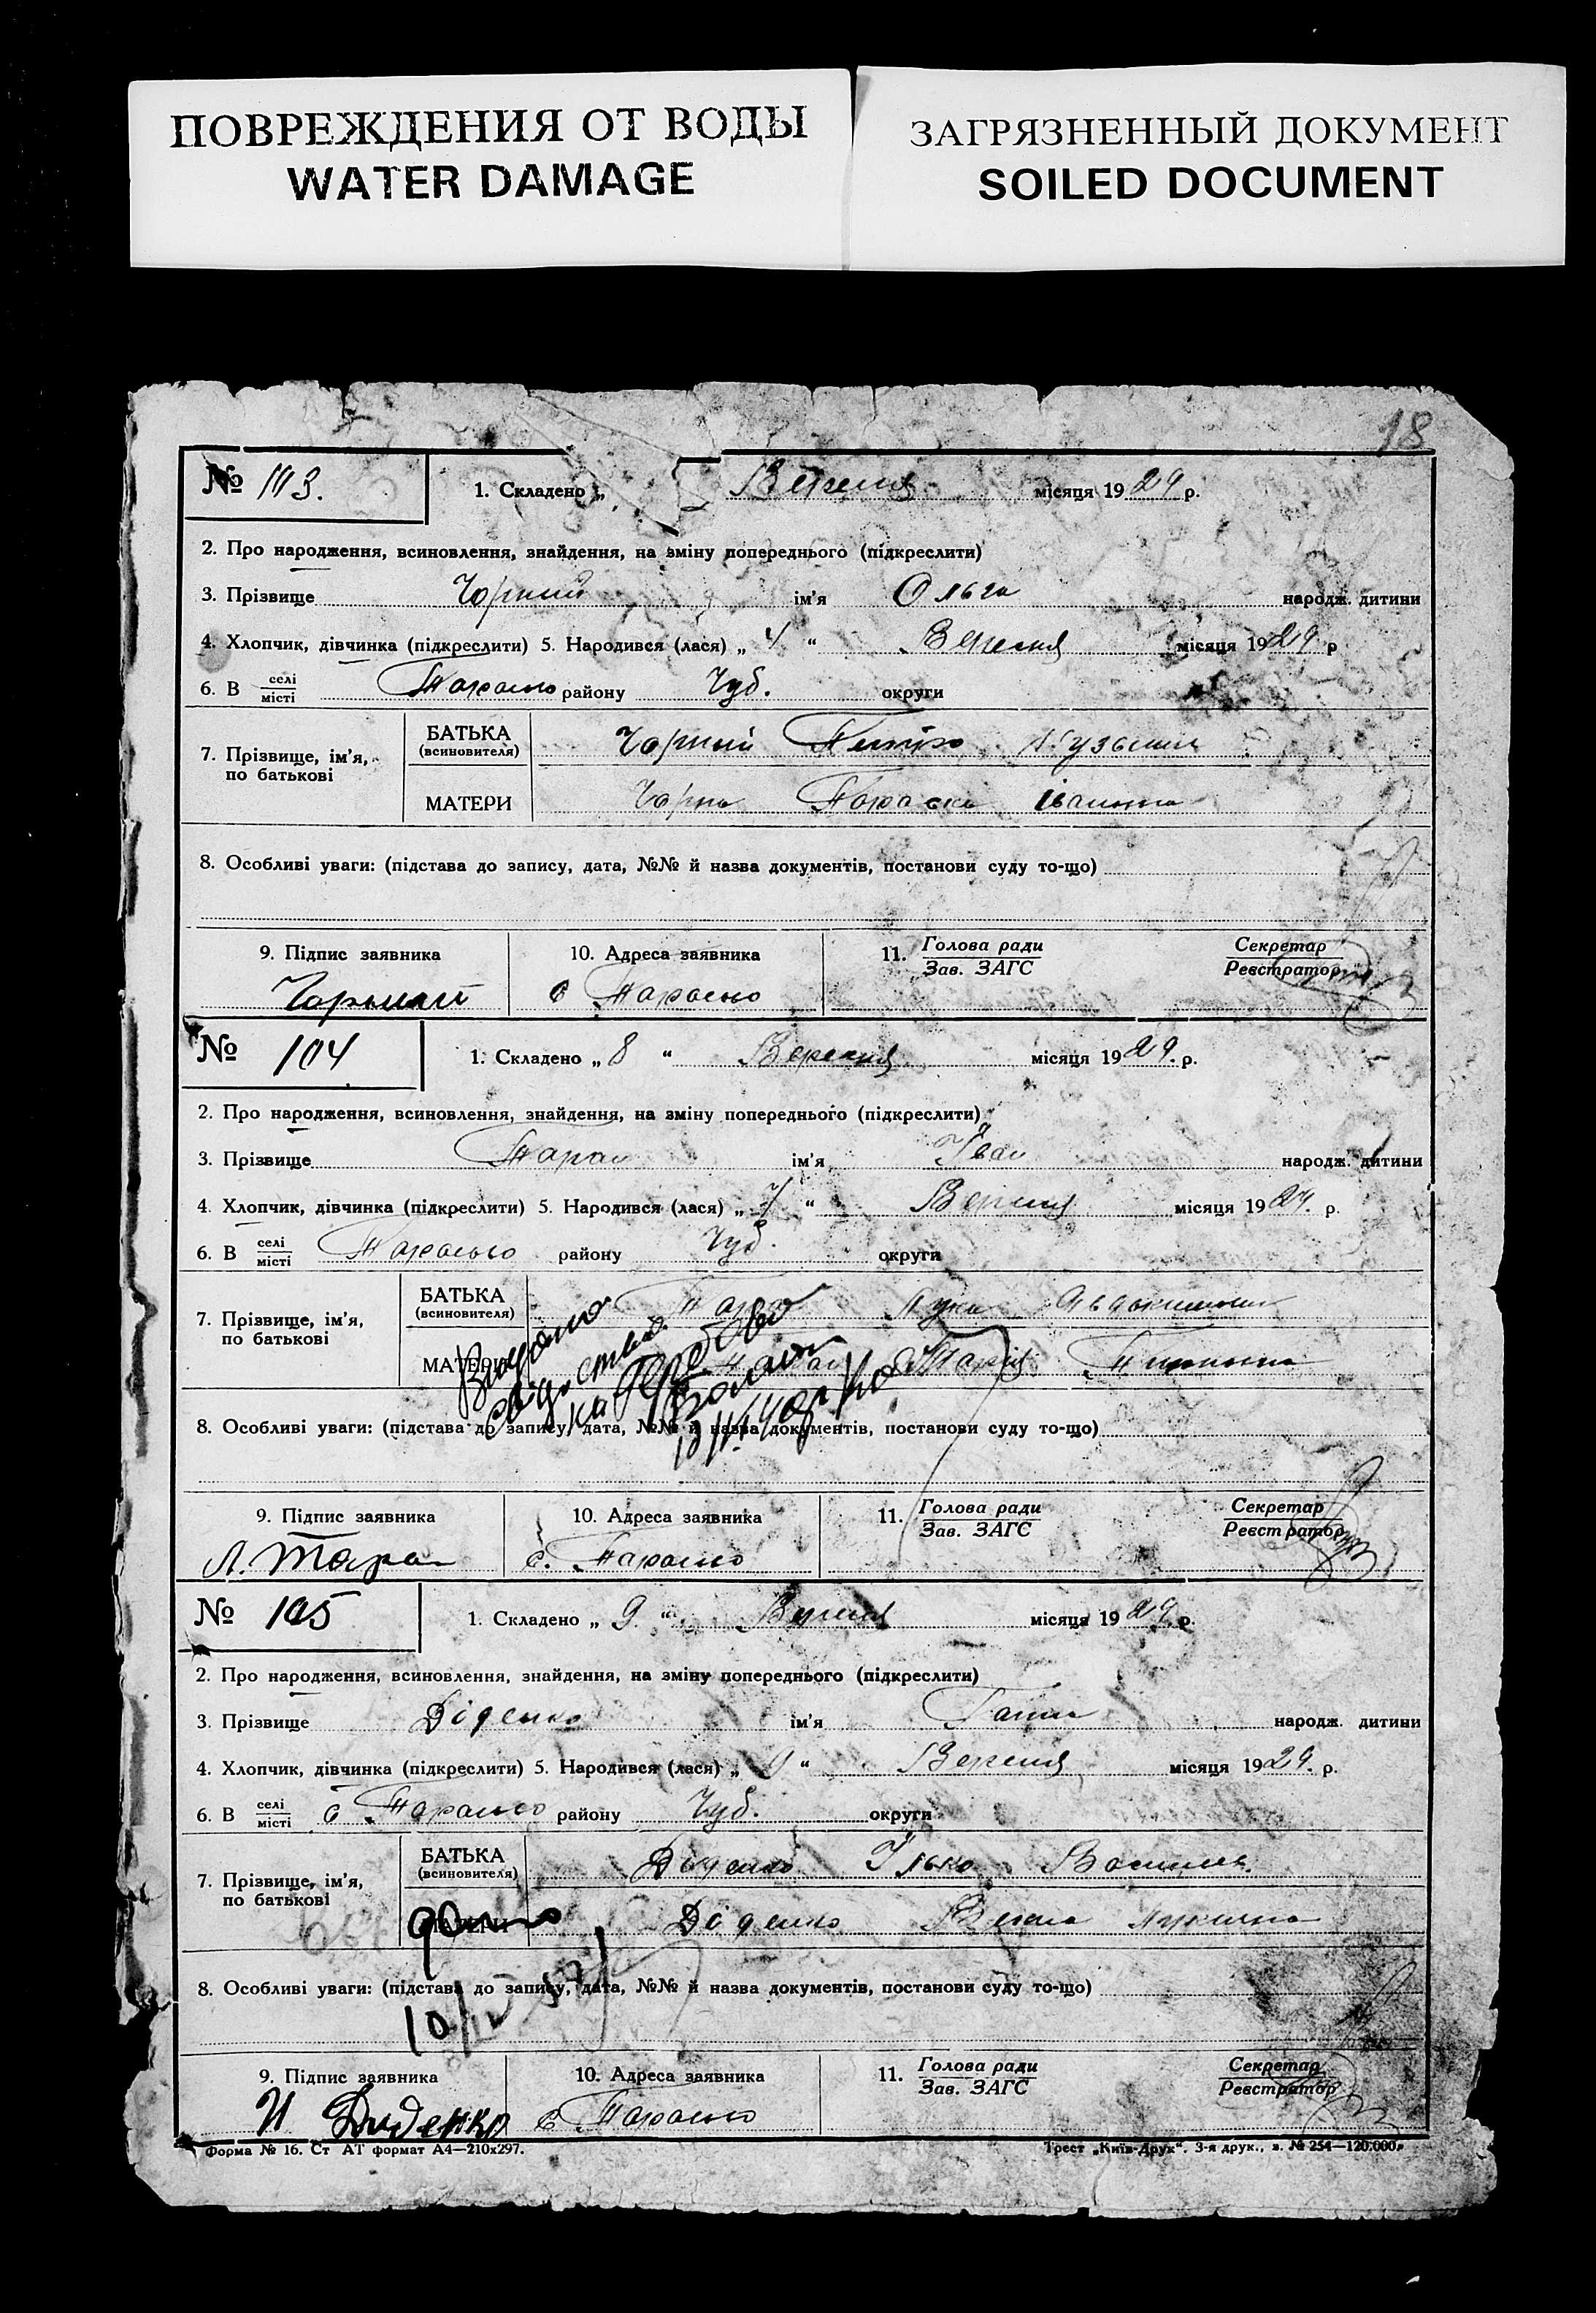 ПОВРЕЖДЕНИЯ ОТ ВОДЫ
WATER DAMAGE
ЗАГРЯЗНЕННЫЙ ДОКУМЕНТ
SOILED DOCUMENT
18
№ 103. 1. Складено „ Вересня місяця 1929 р.
2. Про народження, всиновлення, знайдення, на зміну попереднього (підкреслити)
3. Прізвище Чорний ім'я Ольга народж. дитини
4. Хлопчик, дівчинка (підкреслити) 5. Народився (лася) „ 4 “ Вересня місяця 1929 р
6. В селі місті Тарасью району Чуб. округи
7. Прізвище, ім'я, по батькові
БАТЬКА (всиновителя) Чорний Петро
МАТЕРИ Чорна Параска Івановна
8. Особливі уваги: (підстава до запису, дата, №№ й назва документів, постанови суду то-що)
9. Підпис заявника 10. Адреса заявника 11. Голова ради Зав. ЗАГС Секретар Реєстратор
Чорний с
№ 104 1. Складено „ 8 “ Вересня місяця 1929. р.
2. Про народження, всиновлення, знайдення, на зміну попереднього (підкреслити)
3. Прізвище Таран ім'я Іван народж. дитини
4. Хлопчик, дівчинка (підкреслити) 5. Народився (лася) „ 7 “ Вересня місяця 1929. р.
6. В селі місті району Чуб. округи
7. Прізвище, ім'я, по батькові
БАТЬКА (всиновителя) Таран Лука
МАТЕРИ Таран Марія
Видано
8. Особливі уваги: (підстава до запису, дата, №№ й назва документів, постанови суду то-що)
9. Підпис заявника 10. Адреса заявника 11. Голова ради Зав. ЗАГС Секретар Реєстратор
Л. Таран с.
№ 105 1. Складено „ 9 “ Вересня місяця 1929 р.
2. Про народження, всиновлення, знайдення, на зміну попереднього (підкреслити)
3. Прізвище Діденко ім'я Ганна народж. дитини
4. Хлопчик, дівчинка (підкреслити) 5. Народився (лася) „ “ Вересня місяця 1929. р.
6. В селі місті с району Чуб. округи
7. Прізвище, ім'я, по батькові
БАТЬКА (всиновителя) Діденко Ілько Василів.
МАТЕРИ Діденко Лукична
8. Особливі уваги: (підстава до запису, дата, №№ й назва документів, постанови суду то-що)
9. Підпис заявника 10. Адреса заявника 11. Голова ради Зав. ЗАГС Секретар Реєстратор
И Диденко с
Форма № 16. Ст АТ формат А4—210х297. Трест „Київ-Друк“. 3-я друк., з. № 254—120.000.